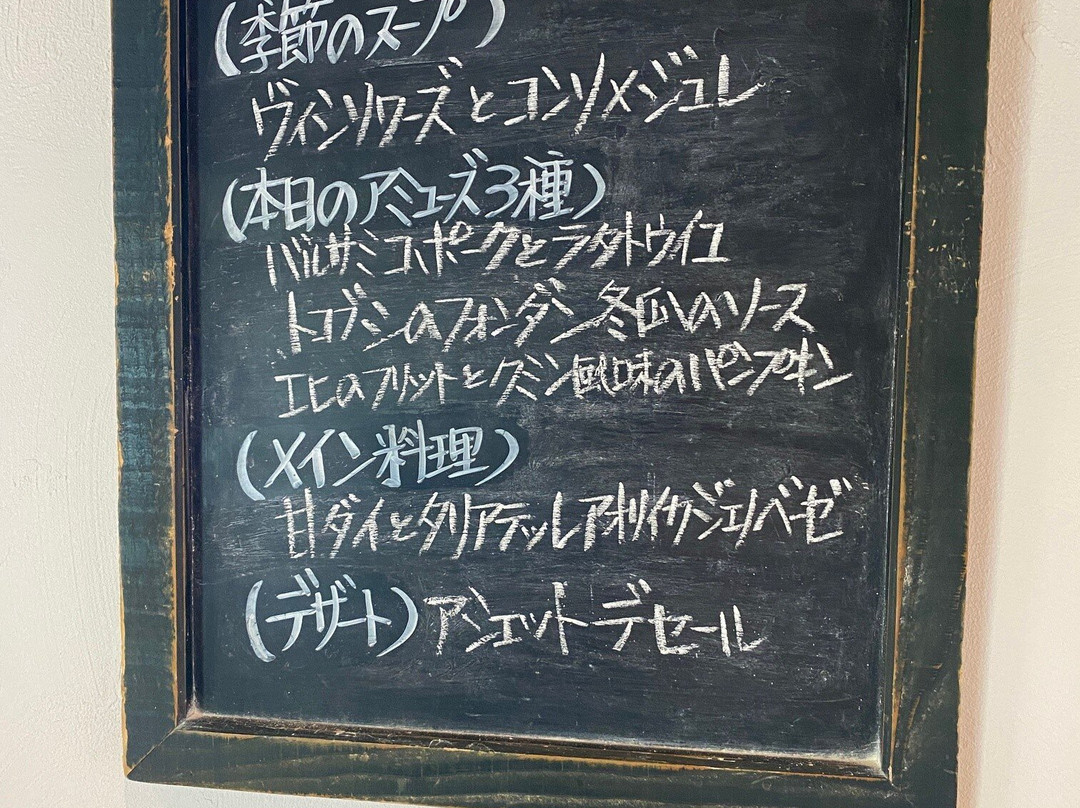 (季節のスープ)
ヴィシソワーズとコンソメジュレ
(本日のアミューズ3種)
バルサミコポークとラタトウイユ
トコブシのフォンダン冬瓜のソース
エビのフリットとクミン風味のパンプキン
(メイン料理)
甘ダイとタリアテッレアオリイカジェノベーゼ
(デザート)アシェットデセール